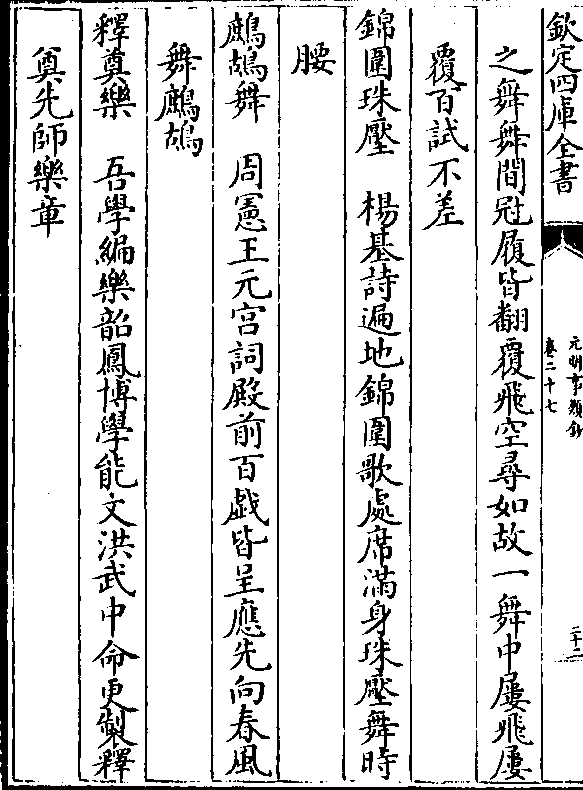 欽定四庫全書
元明事類鈔
卷二十七
二十二
之舞舞間冠履皆翻覆飛空尋如故一舞中屢飛屢
覆百試不差
錦圍珠壓　楊基詩遍地錦圍歌處席滿身珠壓舞時
腰
鷓鴣舞　周憲王元宫詞殿前百戯皆呈應先向春風
舞鷓鴣
釋奠樂　吾學編樂韶鳳博學能文洪武中命更製釋
奠先師樂章